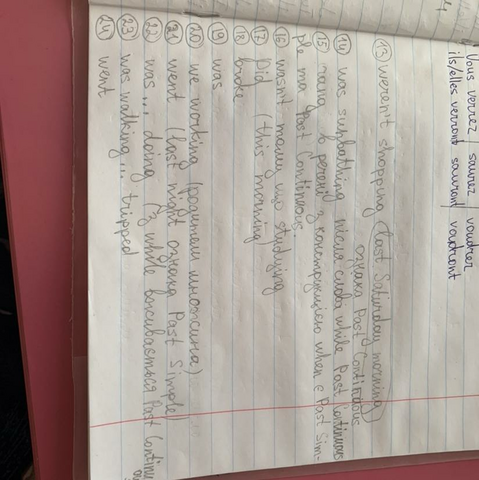 Vous verrez saurez voudrez
ils/elles verront sauront voudront
13 weren't shopping (last Saturday morning)
ознака Past Continuous
14 was sunbathing після слова while Past Continuous
15 rang в реченні з конструкцією when є Past Sim-
ple та Past Continuous.
16 wasn't тому що studying
17 Did (this morning)
18 broke
19 was
20 we working (родители множина)
21 went (last night ознака Past Simple
22 was... doing (з while вживається Past Continu
23 was walking... tripped
24 went